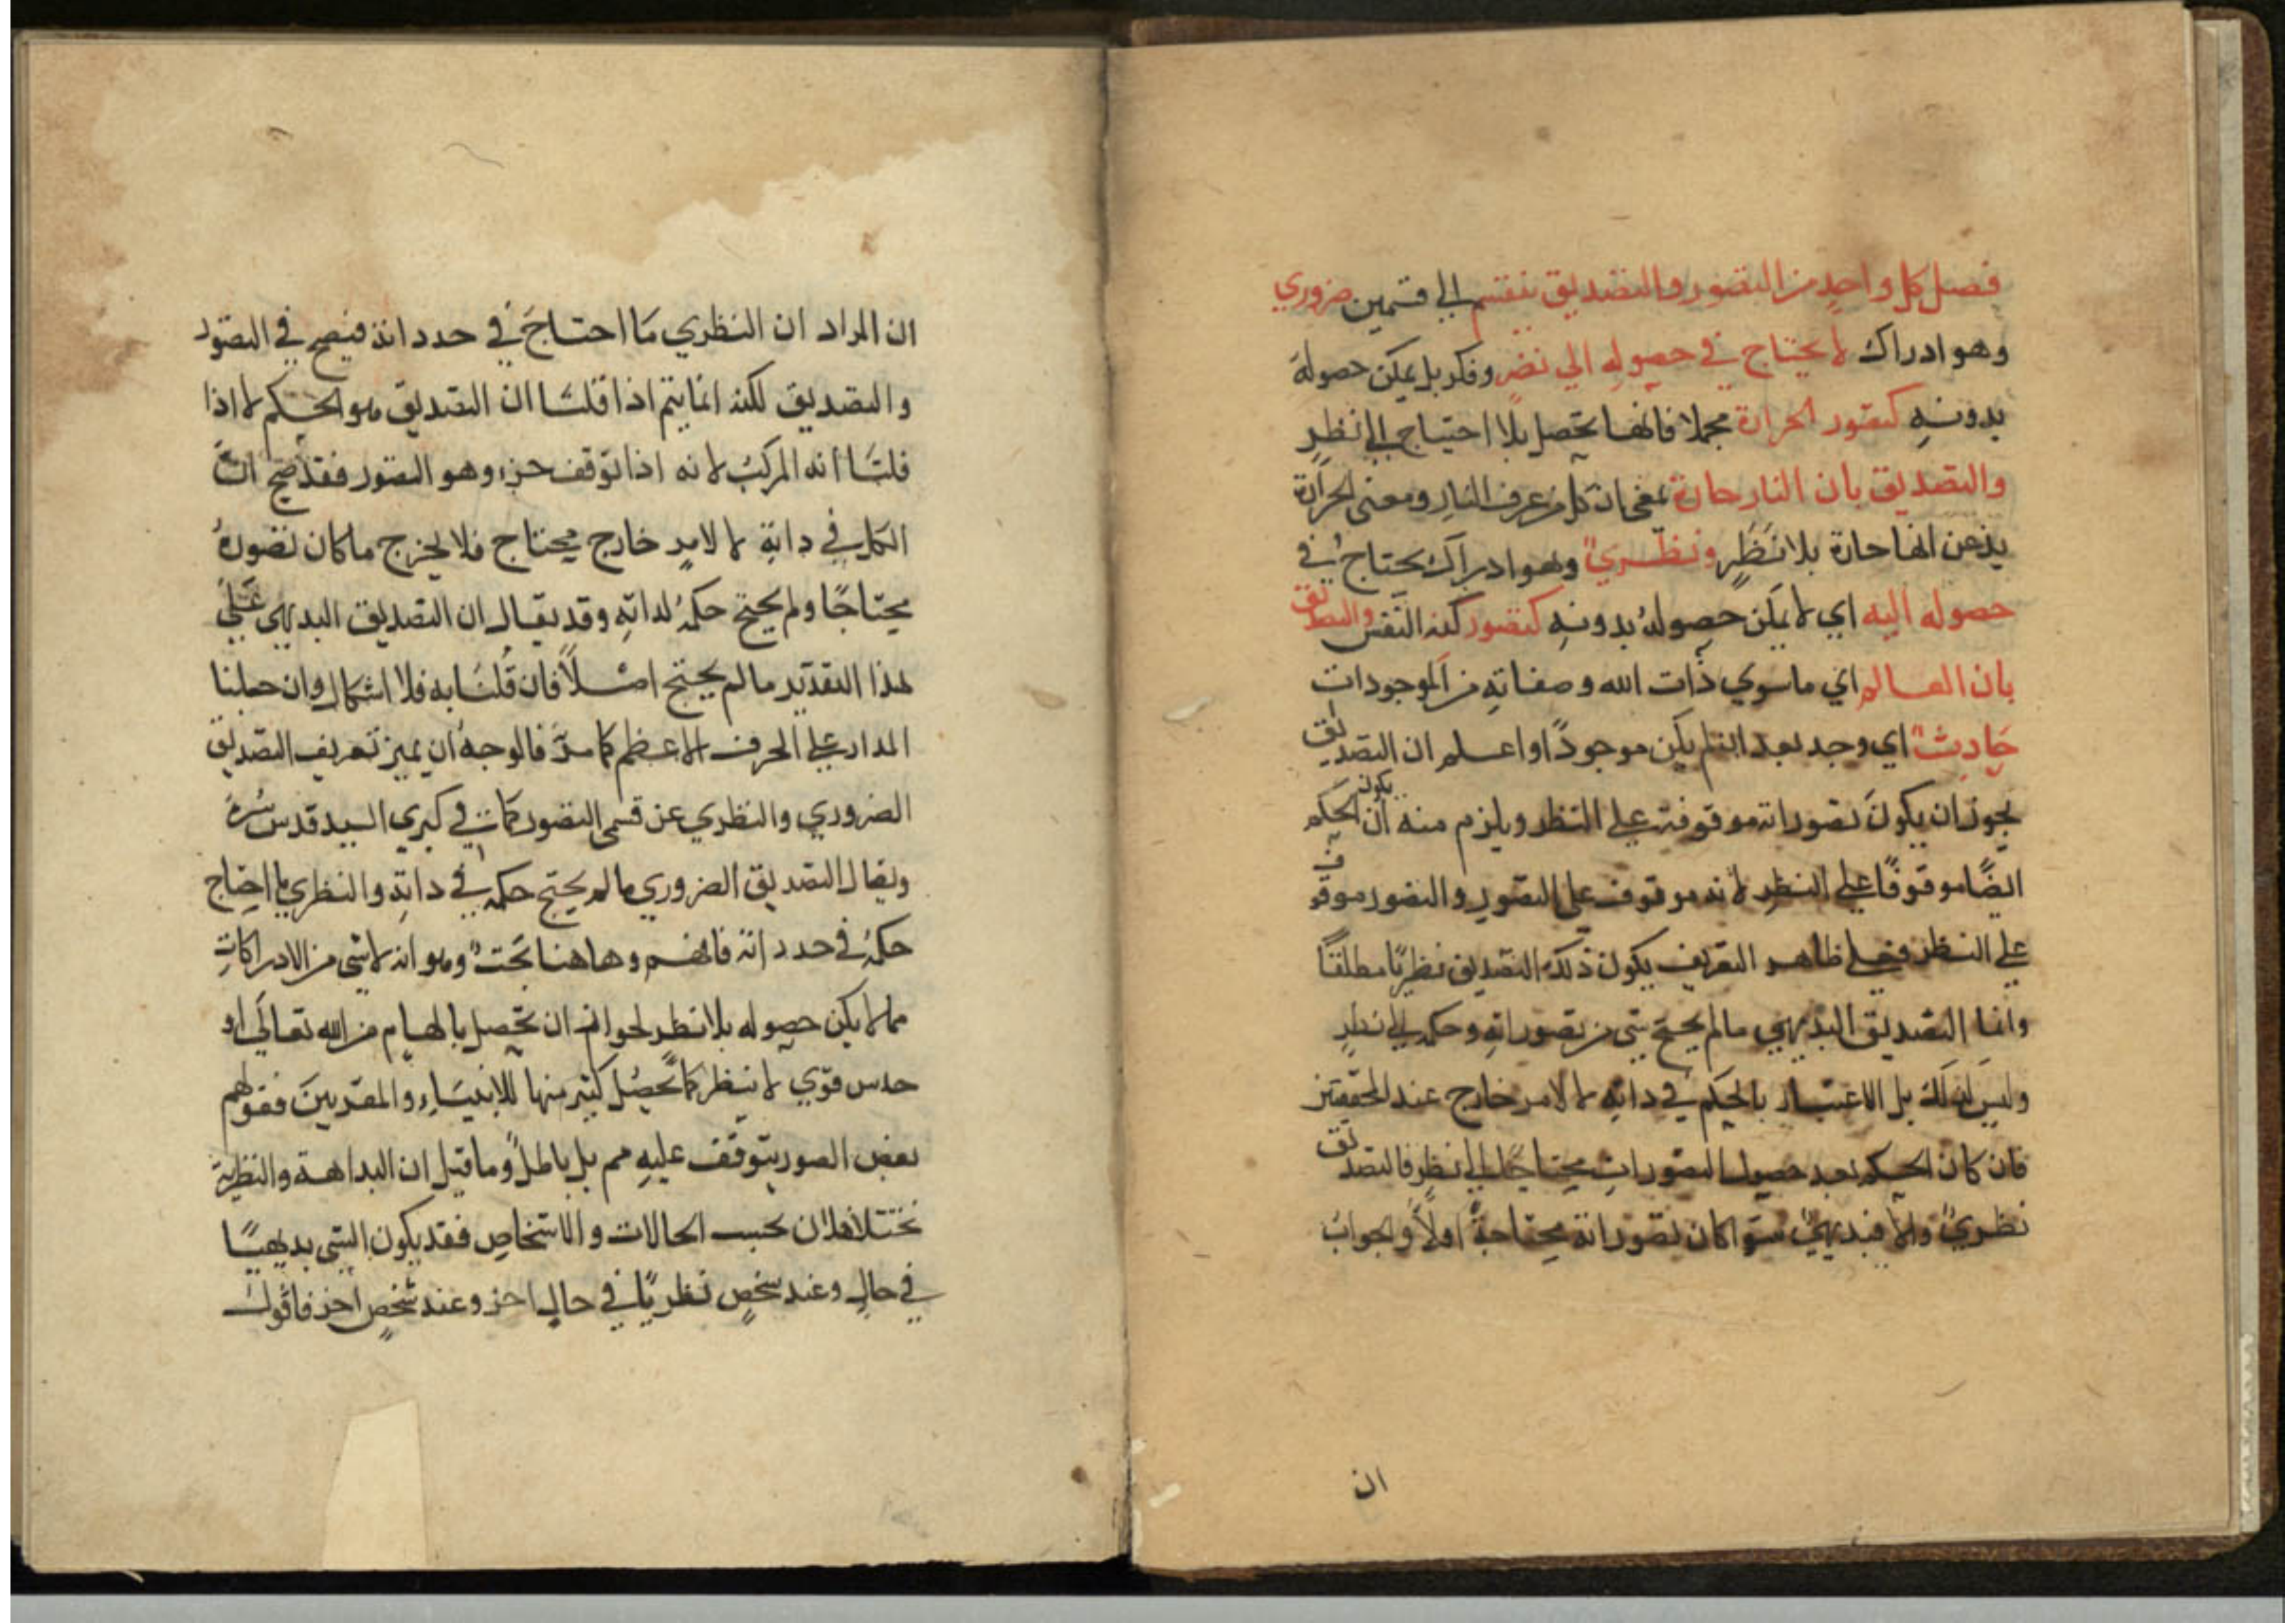 فصل كل واحد من التصور والتصديق ينقسم الي قسمين ضروري
وهو ادراك لا يحتاج في حصوله الي نضر وفكر بل يمكن حصوله
بدونه كتصور الحرارة مجملا فانها تحصل بلا احتياج الي نظر
والتصديق بان النار حارة بمعني ان كل من عرف النار ومعني الحرارة
يذعن انها حارة بلا نظر ونظري وهو ادراك يحتاج في
حصوله اليه اي لا يمكن حصوله بدونه كتصور كنه النفس والتصديق
بان العالم اي ما سوي ذات الله وصفاته من الموجودات
حادث اي وجد بعد ان لم يكن موجودا واعلم ان التصديق
يجوز ان يكون تصوراته موقوفة علي النظر ويلزم منه ان يكون الحكم
ايضا موقوفا علي النظر لانه موقوف علي التصور والتصور موقوف
علي النظر فعلي ظاهر التعريف يكون ذلك التصديق نظريا مطلقا
وانما التصديق البديهي ما لم يحتج شي من تصوراته وحكمه الي نظر
وليس كذلك بل الاعتبار بالحكم في داته لا لامر خارج عند المحققين
فان كان الحكم بعد حصول التصورات محتاجا الي نظر فالتصديق
نظري والا فبديهي سوا كان تصوراته محتاجة اولا والجواب
ان
ان المراد ان النظري ما احتاج في حد داته فيصح في التصور
والتصديق لكنه انما يتم اذا قلنا ان التصديق هو الحكم لا اذا
قلنا انه المركب لانه اذا توقف جزء وهو التصور فقد صح ان
الكل في داته لا لامر خارج محتاج فلا يخرج ما كان تصوره
محتاجا ولم يحتج حكمه لداته وقد يقال ان التصديق البديهي علي
هذا التقدير ما لم يحتج اصلا فان قلنا به فلا اشكال وان جعلنا
المدار علي الحرف الاعظم كما مر فالوجه ان يميز تعريف التصديق
الضروري والنظري عن قسمي التصور كما في كبري السيد قدس سره
ويقال التصديق الضروري ما لم يحتج حكمه في داته والنظري ما احتاج
حكمه في حد داته فافهم وهاهنا بحث وهو انه لا شي من الادراكات
مما لا يكن حصوله بلا نظر لجواز ان تحصل بالهام من الله تعالي او
حدس قوي لا بنظر كما تحصل كثير منها للانبياء والمقربين فقولهم
بعض الصور يتوقف عليه مم بل باطل وما قيل ان البداهة والنظرية
تختلفان بحسب الحالات والاشخاص فقد يكون الشي بديهيا
في حال وعند شخص نظريا في حال اخر وعند شخص اخر فاقول